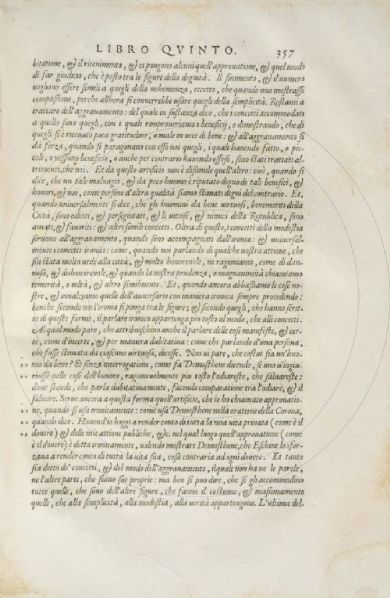 LIBRO QVINTO. 357
bitatione, & il ritenimento, & ci pongono alcuni quell'approuatione, & quel modo
di far giudicio, che è posto tra le figure della dignità. Il finimento, & il numero
uogliono essere simili a quegli della uehemenza, eccetto, che quando uno mostrasse
compassione, perche allhora si conuerrebbe usare quegli della semplicità. Restami a
trattare dell'aggrauamento: del quale in sustanza dico, che i concetti accommodati
a quello sono quegli, con i quali rimprouerriamo i beneficij, o dimostrando, che di
quegli si è riceuuto poca gratitudine, o male in uece di bene: & all'aggrauamento si
dà forza, quando si paragonano con essi noi quegli, i quali hauendo fatto, o pic-
coli, o nissuno beneficio, o anche per contrario hauendo offeso, sono stati trattati al-
trimenti, che noi. Et da questo artificio non è dissimile quell'altro: cioè, quando si
dice, che un tale maluagio, & da poco huomo è riputato degno di tali beneficij, &
honori, & noi, come persone d'altra qualità siamo stimati degni del contrario. Et,
quando uniuersalmente si dice, che gli huomini da bene uirtuosi, benemeriti della
Città, sono odiati, & perseguitati, & li uitiosi, & nimici della Republica, sono
amati, & fauoriti: & altri simili concetti. Oltra di questo, i concetti della modestia
seruono all'aggrauamento, quando sono accompagnati dall'ironia: & uniuersal-
mente i concetti ironici: come, quando noi parlando di qualche nostra attione, che
sia stata molto utile alla città, & molto honoreuole, ne ragioniamo, come di dan-
nosa, & dishonoreuole, & quando la nostra prudenza, o magnanimità chiamiamo
temerità, o uiltà, & altro similmente. Et, quando ancora abbassiamo le cose no-
stre, & innalzíamo quelle dell'auuersario con maniera ironica sempre procedendo:
benche secondo noi l'ironia si ponga tra le figure; & secondo quegli, che hanno scrit-
to di queste forme, il parlare ironico appartenga più tosto al modo, che alli concetti.
Al qual modo pare, che attribuischino anche il parlare delle cose manifeste, & cer-
te, come d'incerte, & per maniera dubitatiua: come chi parlando d'una persona,
che fusse stimata da ciascuno uirtuosa, dicesse. Non ui pare, che costui sia un'huo-
mo da bene? Et senza interrogatione, come fa Demosthene dicendo, se uno s'ingiu-
riasse nelle cose dell'honore, ragioneuolmente più tosto l'odiareste, che saluareste:
doue si uede, che parla dubitatiuamente, facendo comparatione tra l'odiare, & il
saluare. Serue ancora a questa forma quell'artificio, che io ho chiamato approuatio-
ne, quando si usa ironicamente: come usa Demosthene nella oratione della Corona,
quando dice. Hauend'io hoggi a render conto di tutta la mia uita priuata (come è il
douere) & delle mie attioni publiche, &c. nel qual luogo quell'approuatione (come
è il douere) è detta ironicamente, uolendo mostrare Demosthene, che Eschine lo sfor-
zaua a render conto di tutta la uita sua, cosa contraria ad ogni douere. Et tanto
sia detto de' concetti, & del modo dell'aggrauamento, il quale non ha ne le parole,
ne l'altre parti, che siano sue proprie: ma ben si può dire, che si gli accommodino
tutte quelle, che sono dell'altre figure, che fanno il costume, & massimamente
quelle, che alla semplicità, alla modestia, alla uerità appartengono. L'ultima del-